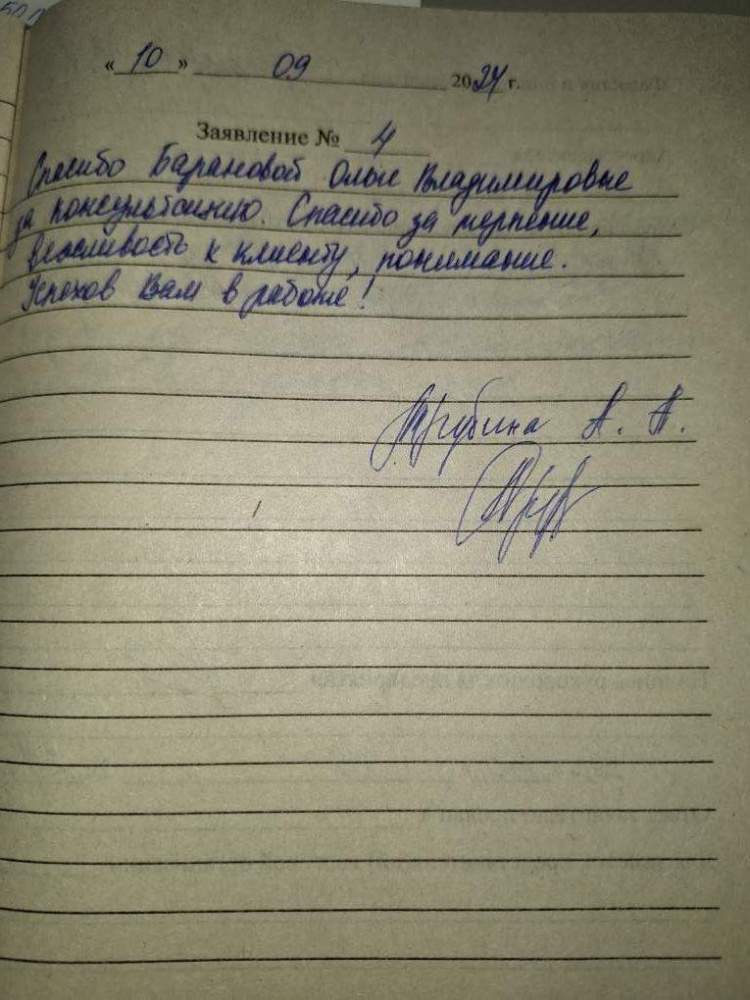 « 10 » 09 2024 г.
Заявление № 4
Спасибо Барановой Ольге Владимировне
за консультацию. Спасибо за терпение,
вежливость к клиенту, понимание.
Успехов Вам в работе!
Трубина А. А.